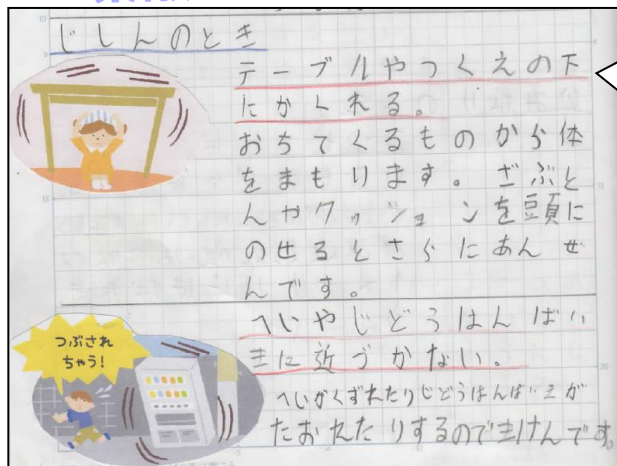 じしんのとき
テーブルやつくえの下
にかくれる。
おちてくるものから体
をまもります。ざぶと
んやクッションを頭に
のせるとさらにあんぜ
んです。
へいやじどうはんばい
きに近づかない。
つぶされ
ちゃう!
へいがくずれたりじどうはんばいきが
たおれたりするのできけんです。